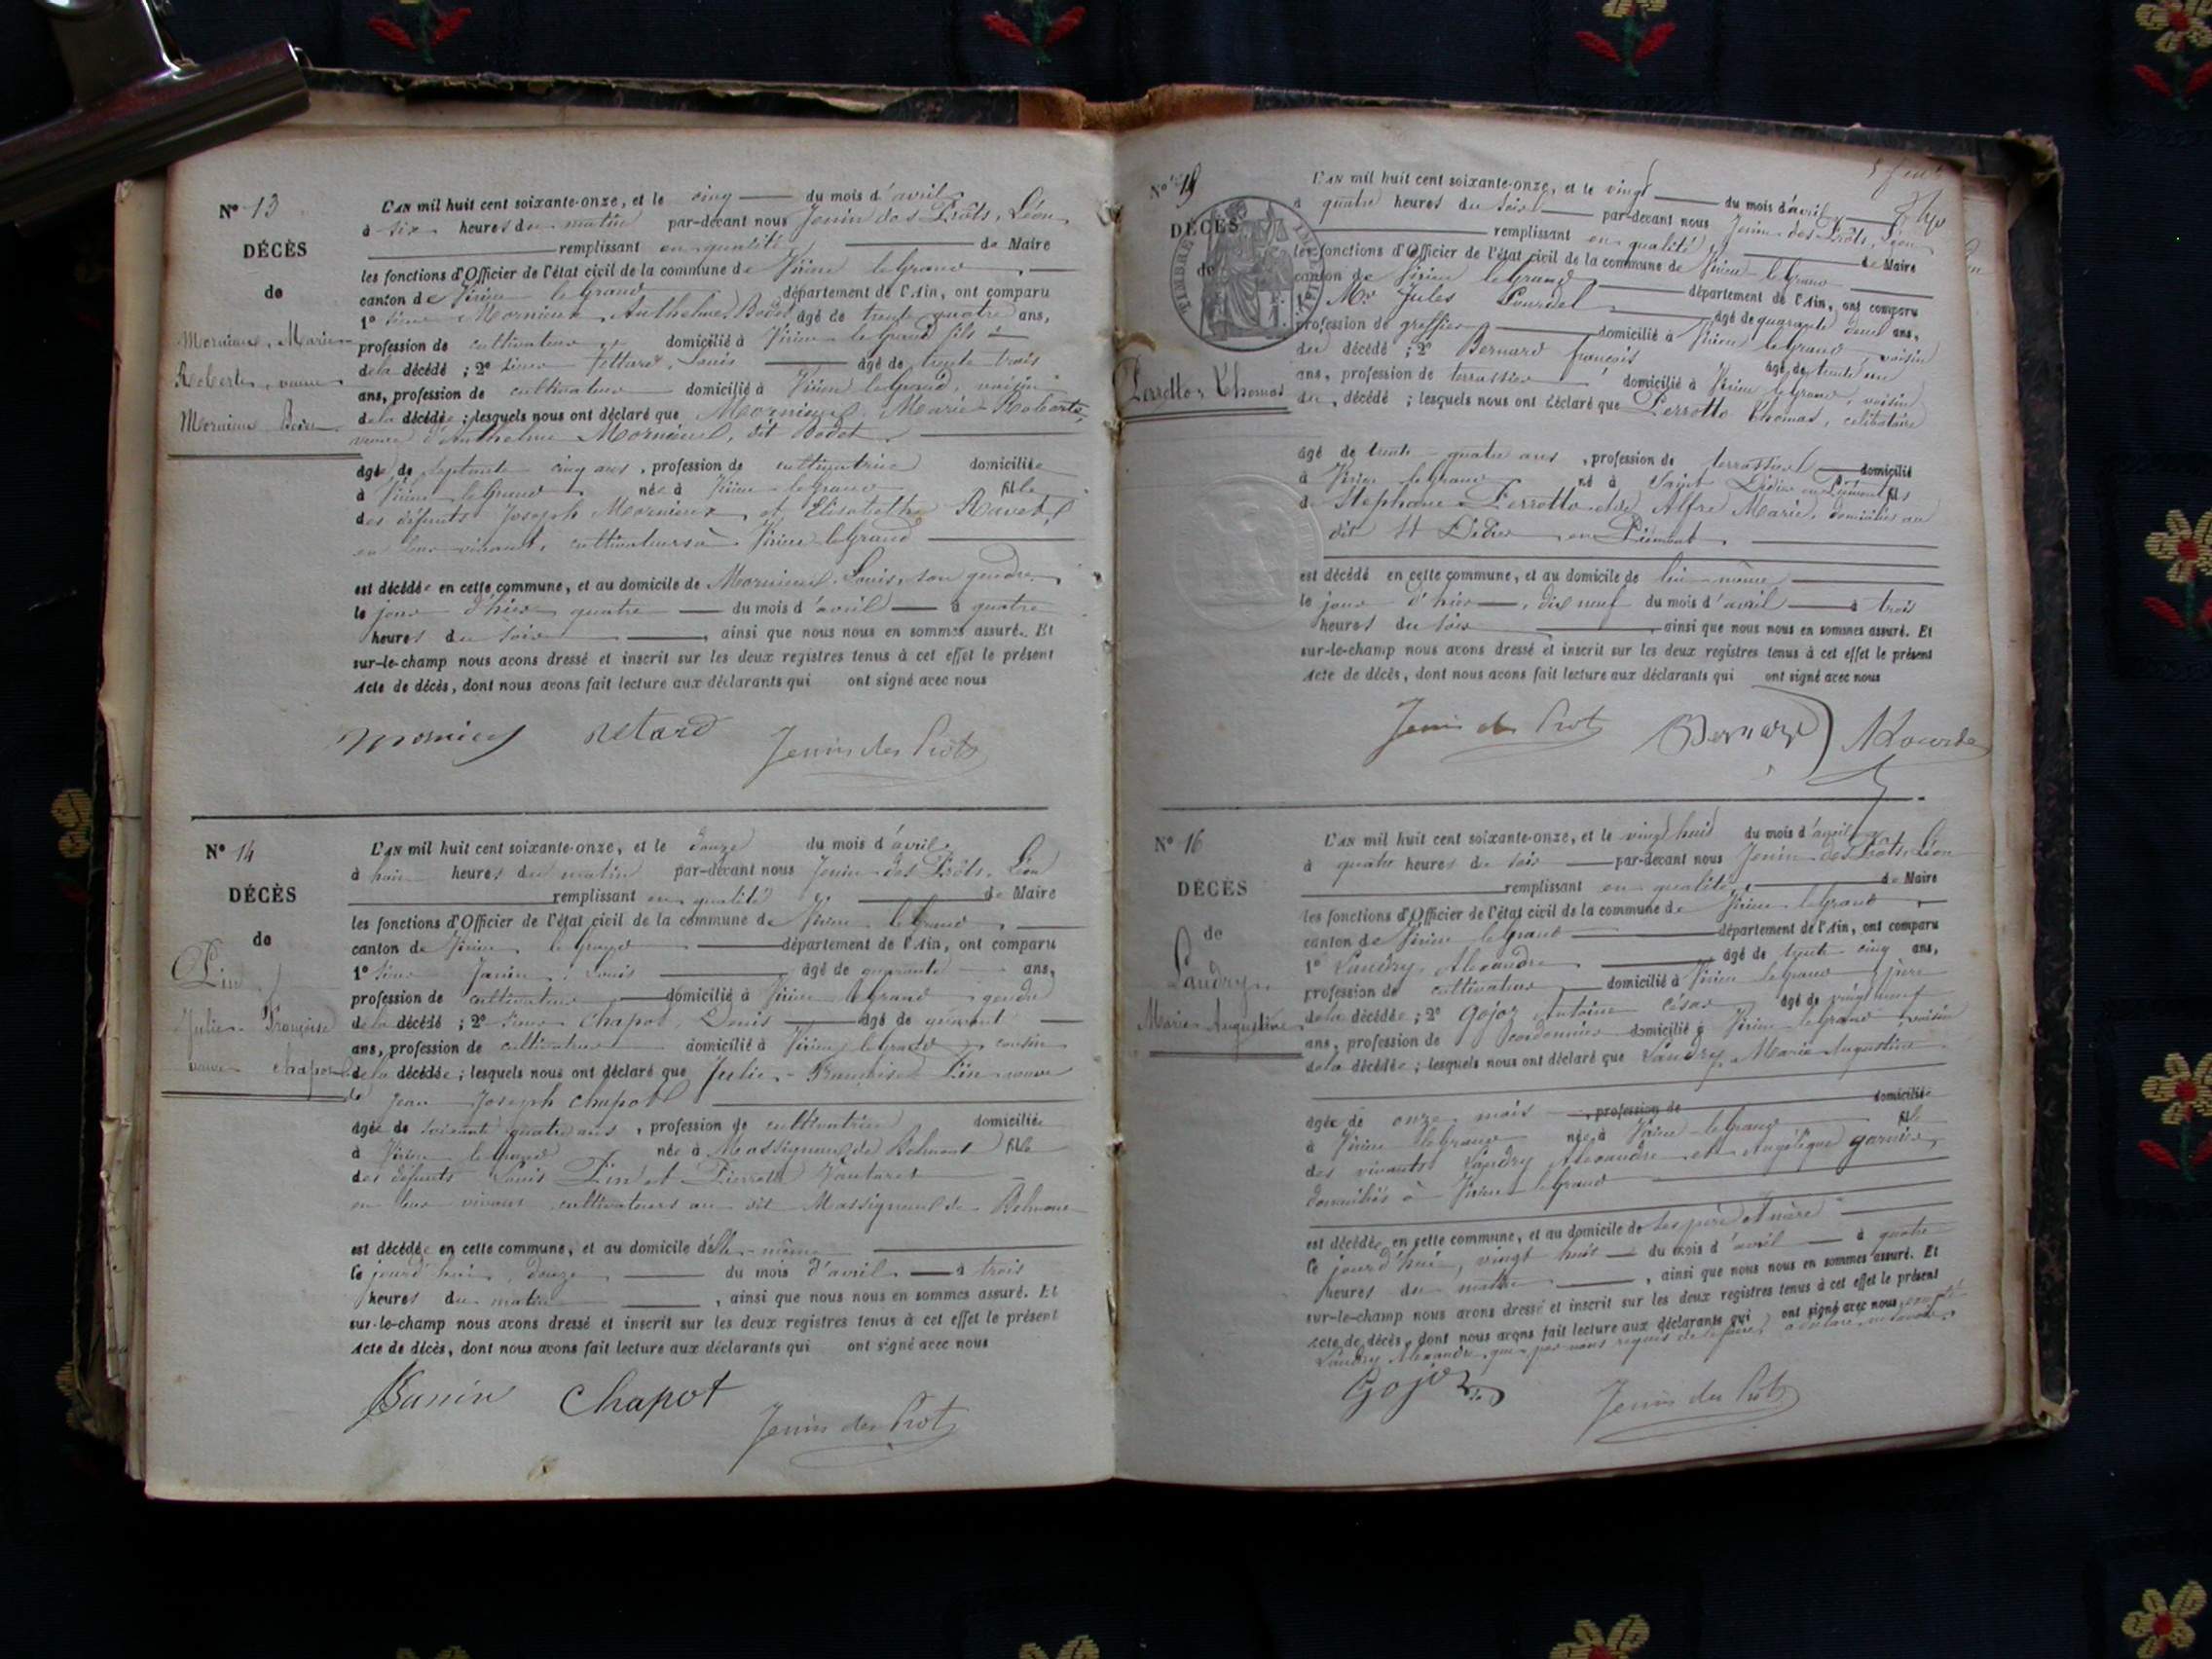 N° 13
DÉCÈS
de
Mornieux, Marie
Roberte, veuve
Mornieux
L'AN mil huit cent soixante-onze, et le cinq du mois d'avril
à six heures du matin par-devant nous Jenin des Prôts, Léon
remplissant en qualité de Maire
les fonctions d'Officier de l'état civil de la commune de Virieu le Grand
canton de Virieu le Grand département de l'Ain, ont comparu
1° sieur Mornieux Anthelme Bodet âgé de trente quatre ans,
profession de cultivateur domicilié à Virieu-le Grand fils
de la décédé ; 2° sieur Louis âgé de trente trois
ans, profession de cultivateur domicilié à Virieu le Grand, voisin
de la décédée ; lesquels nous ont déclaré que Mornieux Marie Roberte,
veuve d'Anthelme Mornieux, dit Bodet
âgée de septante cinq ans, profession de cultivatrice domiciliée
à Virieu le Grand née à Virieu-le Grand fille
des défunts Joseph Mornieux et Elisabeth Ravet,
en leur vivant, cultivateurs à Virieu le Grand
est décédée en cette commune, et au domicile de Mornieux Louis, son gendre,
le jour d'hier quatre du mois d'avril à quatre
heures du soir, ainsi que nous nous en sommes assuré. Et
sur-le-champ nous avons dressé et inscrit sur les deux registres tenus à cet effet le présent
Acte de décès, dont nous avons fait lecture aux déclarants qui ont signé avec nous
Jenin des Prôts
N° 14
DÉCÈS
de
Pin
Julie-Françoise
veuve Chapot
L'AN mil huit cent soixante-onze, et le douze du mois d'avril
à huit heures du matin par-devant nous Jenin des Prôts, Léon
remplissant en qualité de Maire
les fonctions d'Officier de l'état civil de la commune de Virieu le Grand
canton de Virieu le Grand département de l'Ain, ont comparu
1° sieur Janin, Louis âgé de quarante ans,
profession de cultivateur domicilié à Virieu le Grand, gendre
de la décédé ; 2° sieur Chapot, Denis âgé de
ans, profession de cultivateur domicilié à Virieu le Grand, cousin
de la décédée ; lesquels nous ont déclaré que Julie-Françoise Pin veuve
de Jean Joseph Chapot
âgée de soixante quatre ans, profession de cultivatrice domiciliée
à Virieu le Grand née à Massignieu de Belmont fille
des défunts Louis Pin et Pierrette
en leur vivant cultivateurs au dit Massignieu de Belmont
est décédée en cette commune, et au domicile d'elle-même
le jourd'hui, douze du mois d'avril à trois
heures du matin, ainsi que nous nous en sommes assuré. Et
sur-le-champ nous avons dressé et inscrit sur les deux registres tenus à cet effet le présent
Acte de décès, dont nous avons fait lecture aux déclarants qui ont signé avec nous
Janin Chapot
Jenin des Prôts
DÉCÈS
de
TIMBRE IMPÉRIAL
Perrotto Thomas
L'AN mil huit cent soixante-onze, et le vingt du mois d'avril
à quatre heures du soir par-devant nous Jenin des Prôts, Léon
remplissant en qualité de Maire
les fonctions d'Officier de l'état civil de la commune de Virieu-le Grand
canton de Virieu le Grand département de l'Ain, ont comparu
1° Mr Jules Lourdel âgé de quarante deux ans,
profession de greffier domicilié à Virieu le Grand, voisin
du décédé ; 2° Bernard françois âgé de trente un
ans, profession de terrassier domicilié à Virieu le Grand, voisin
du décédé ; lesquels nous ont déclaré que Perrotto Thomas, célibataire
âgé de trente-quatre ans, profession de terrassier domicilié
à Virieu le Grand né à Saint Didier en Piémont fils
de Stephane Perrotto et de Alfré Marie, domiciliés au
dit St Didier en Piémont
est décédé en cette commune, et au domicile de lui-même
le jour d'hier, dix neuf du mois d'avril à trois
heures du soir, ainsi que nous nous en sommes assuré. Et
sur-le-champ nous avons dressé et inscrit sur les deux registres tenus à cet effet le présent
Acte de décès, dont nous avons fait lecture aux déclarants qui ont signé avec nous
Jenin des Prôts Bernard
N° 16
DÉCÈS
de
Landry
Marie Augustine
L'AN mil huit cent soixante-onze, et le vingt huit du mois d'avril
à quatre heures du soir par-devant nous Jenin des Prôts, Léon
remplissant en qualité de Maire
les fonctions d'Officier de l'état civil de la commune de Virieu-le Grand
canton de Virieu le Grand département de l'Ain, ont comparu
1° Landry, Alexandre âgé de trente cinq ans,
profession de cultivateur domicilié à Virieu le Grand, père
de la décédée ; 2° Gojoz Antoine César âgé de vingt neuf
ans, profession de cordonnier domicilié à Virieu-le Grand voisin
de la décédée ; lesquels nous ont déclaré que Landry, Marie Augustine
âgée de onze mois, profession de domiciliée
à Virieu le Grand née à Virieu-le Grand fille
des vivants Landry Alexandre et Angélique
domiciliés à Virieu le Grand
est décédée en cette commune, et au domicile de ses père et mère
le jourd'hui, vingt huit du mois d'avril à quatre
heures du matin, ainsi que nous nous en sommes assuré. Et
sur-le-champ nous avons dressé et inscrit sur les deux registres tenus à cet effet le présent
Acte de décès, dont nous avons fait lecture aux déclarants qui ont signé avec nous, excepté
Landry Alexandre qui par nous requis de le faire, a déclaré
Gojoz
Jenin des Prôts